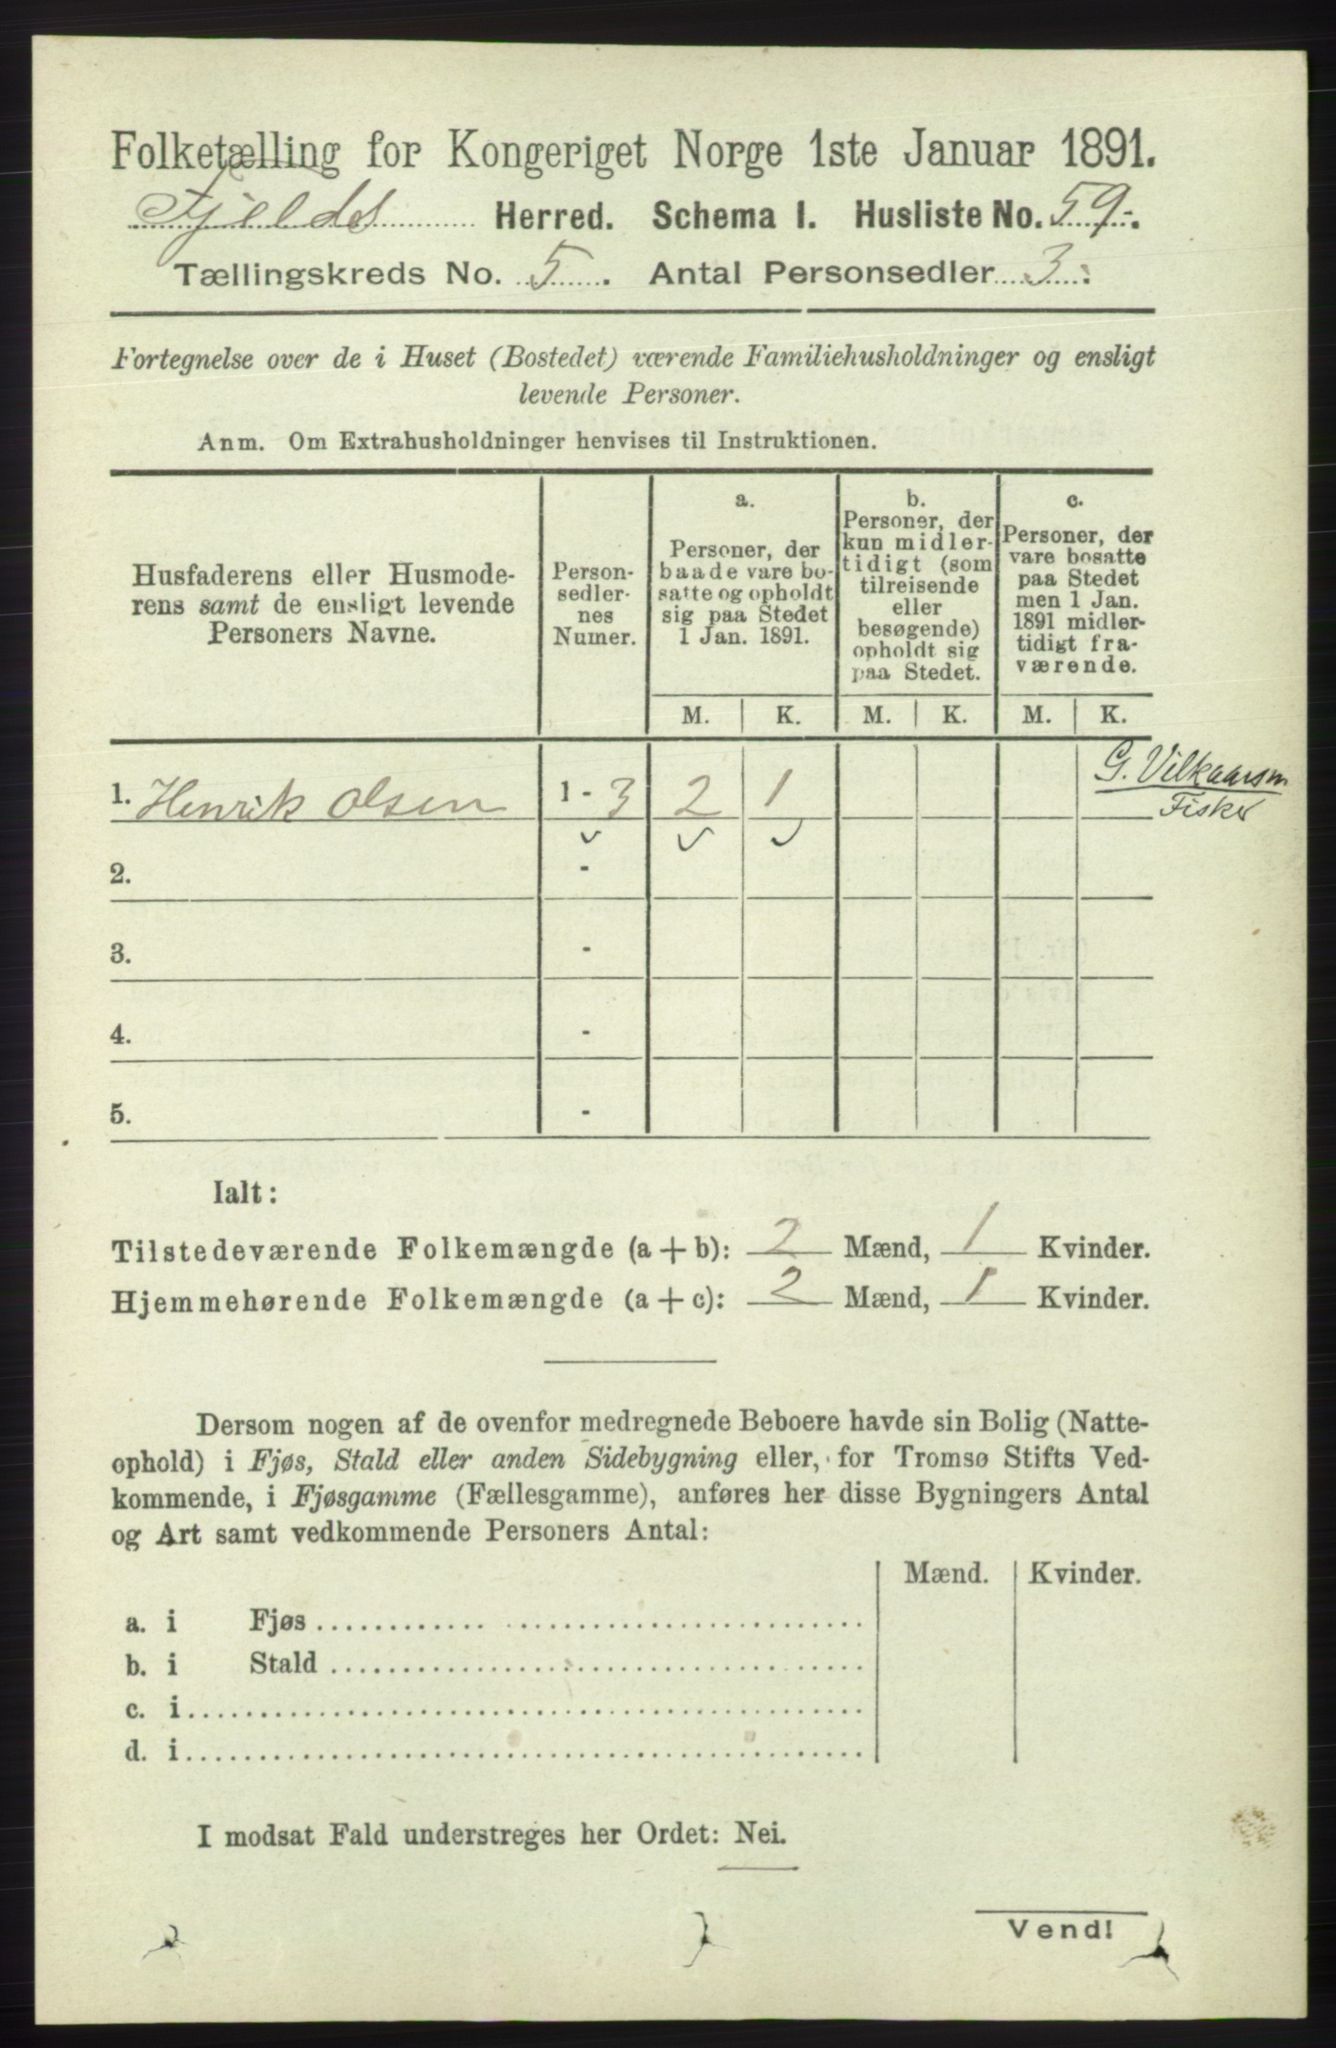 Folketælling for Kongeriget Norge 1ste Januar 1891.
Fjelds Herred. Schema I. Husliste No. 59.
Tællingskreds No. 5. Antal Personsedler 3.
Fortegnelse over de i Huset (Bostedet) værende Familiehusholdninger og ensligt
levende Personer.
Anm. Om Extrahusholdninger henvises til Instruktionen.
Husfaderens eller Husmode-
rens samt de ensligt levende
Personers Navne.
Person-
sedler-
nes
Numer.
a.
Personer, der
baade vare bo-
satte og opholdt
sig paa Stedet
1 Jan. 1891.
b.
Personer, der
kun midler-
tidigt (som
tilreisende
eller
besøgende)
opholdt sig
paa Stedet.
c.
Personer, der
vare bosatte
paa Stedet
men 1 Jan.
1891 midler-
tidigt fra-
værende.
M. K. M. K. M. K.
1. Henrik Olsen 1 - 3 2 1
G. Vilkaarsm
Fisker
2. -
3. -
4. -
5. -
Ialt:
Tilstedeværende Folkemængde (a + b): 2 Mænd, 1 Kvinder.
Hjemmehørende Folkemængde (a + c): 2 Mænd, 1 Kvinder.
Dersom nogen af de ovenfor medregnede Beboere havde sin Bolig (Natte-
ophold) i Fjøs, Stald eller anden Sidebygning eller, for Tromsø Stifts Ved-
kommende, i Fjøsgamme (Fællesgamme), anføres her disse Bygningers Antal
og Art samt vedkommende Personers Antal:
Mænd. Kvinder.
a. i Fjøs
b. i Stald
c. i
d. i
I modsat Fald understreges her Ordet: Nei.
Vend!